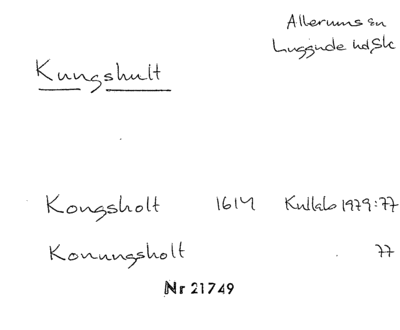 Allerums sn
Luggude hd Sk
Kungshult
Kongsholt 1614 Kullab 1979:77
Konungsholt 77
Nr 21749